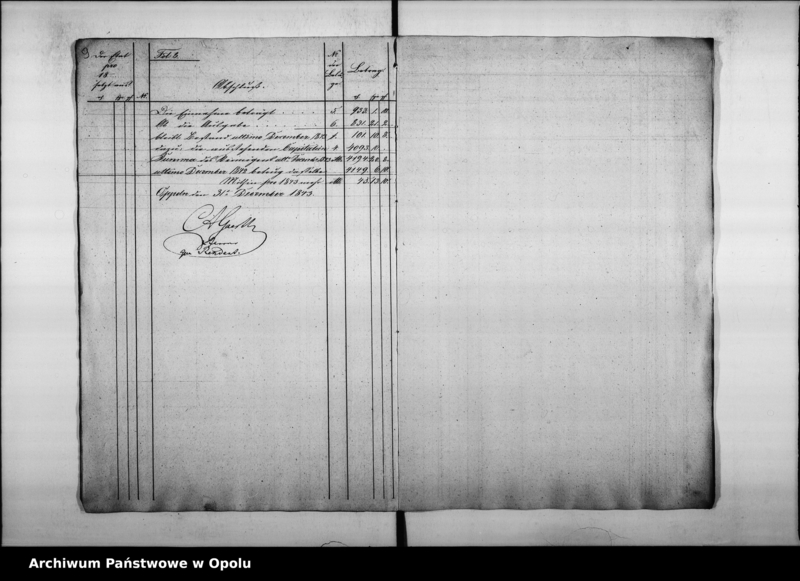 Der Etat
pro
18
setzt aus
Tit. 3.
Abschluß.
No
der
Betrag
Die Einnahme beträgt 5 932. 1. 10.
Ist die Ausgabe 6. 831. 21. 2.
bleibt Bestand ultimo December 1843 101. 10. 8.
dazu die ausstehenden Capitalien 4093. 10.
Summa des Vermögens 4194. 20. 8.
ultimo December 1842 betrug dasselbe 4149. 6. 10.
Mithin pro 1843 mehr 45. 13. 10.
Oppeln den 31. December 1843.
Rendant.
Archiwum Państwowe w Opolu